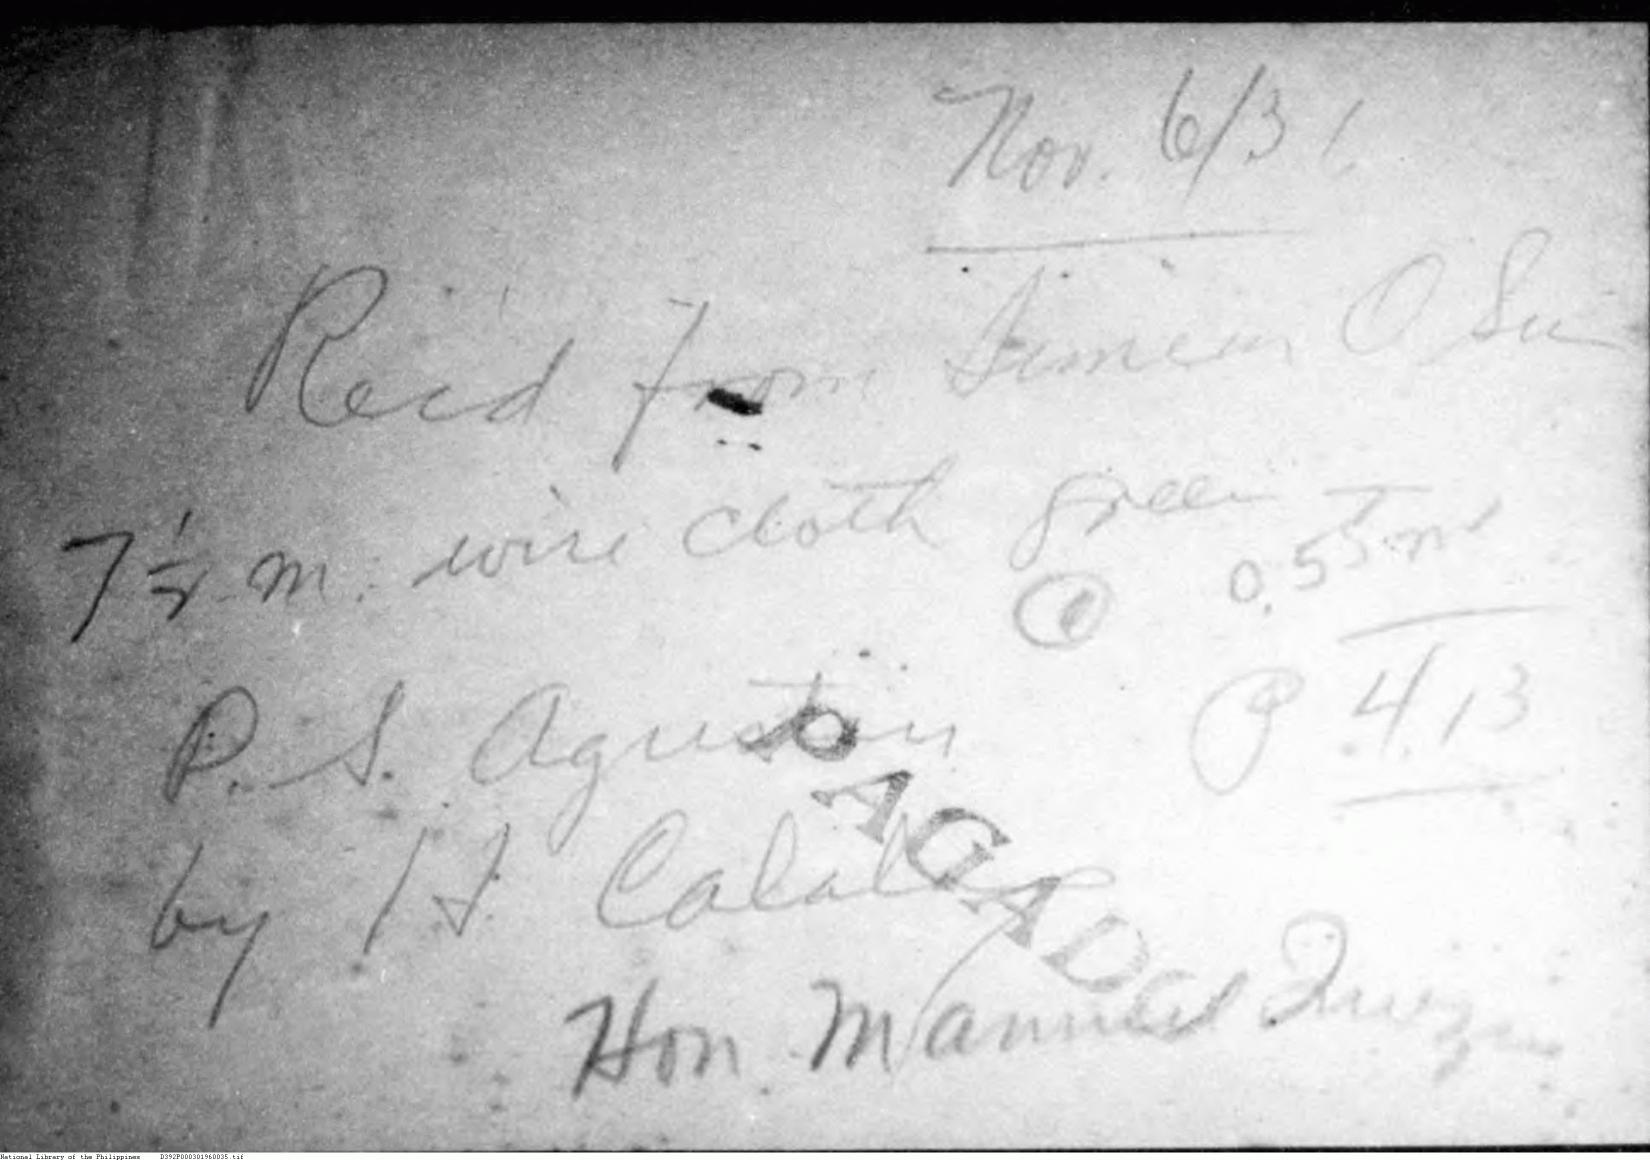 Nov. 6/31
Rec'd from Simeon O. Su
7 1/2 m. wire cloth green
@ 0.55 m
₱ 4.13
P. S. Agustin
by H. Calal
PAGADO
Hon. Manuel Quezon
National Library of the Philippines D392P000301960035.tif